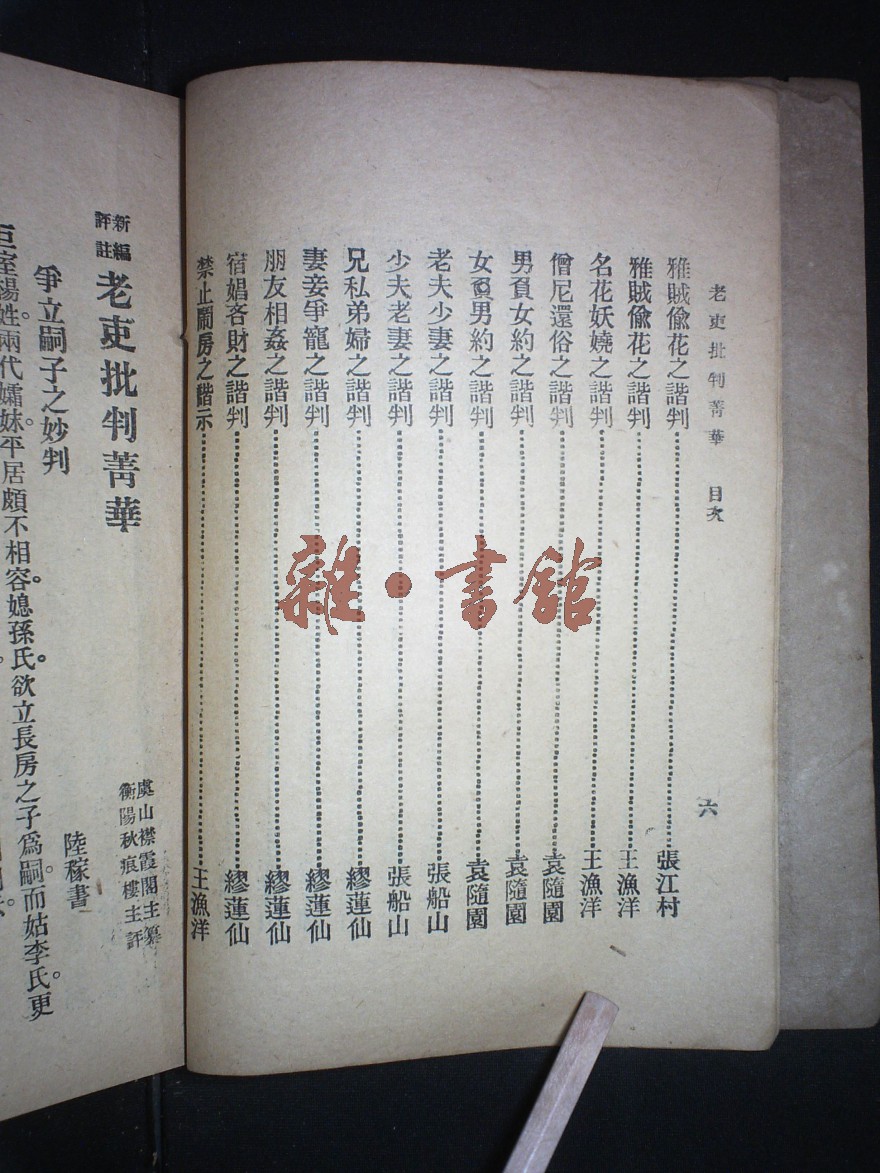 老吏批判菁華　目次　六
雅賊偸花之諧判……張江村
雅賊偸花之諧判……王漁洋
名花妖嬈之諧判……王漁洋
僧尼還俗之諧判……袁隨園
男負女約之諧判……袁隨園
女負男約之諧判……袁隨園
老夫少妻之諧判……張船山
少夫老妻之諧判……張船山
兄私弟婦之諧判……繆蓮仙
妻妾爭寵之諧判……繆蓮仙
朋友相姦之諧判……繆蓮仙
宿娼吝財之諧判……繆蓮仙
禁止鬧房之諧示……王漁洋
虞山襟霞閣主纂
衡陽秋痕樓主評
新編評註老吏批判菁華
陸稼書
爭立嗣子之妙判
巨室楊姓。兩代孀妹。平居頗不相容。媳孫氏。欲立長房之子爲嗣。而姑李氏。更
雜·書舘